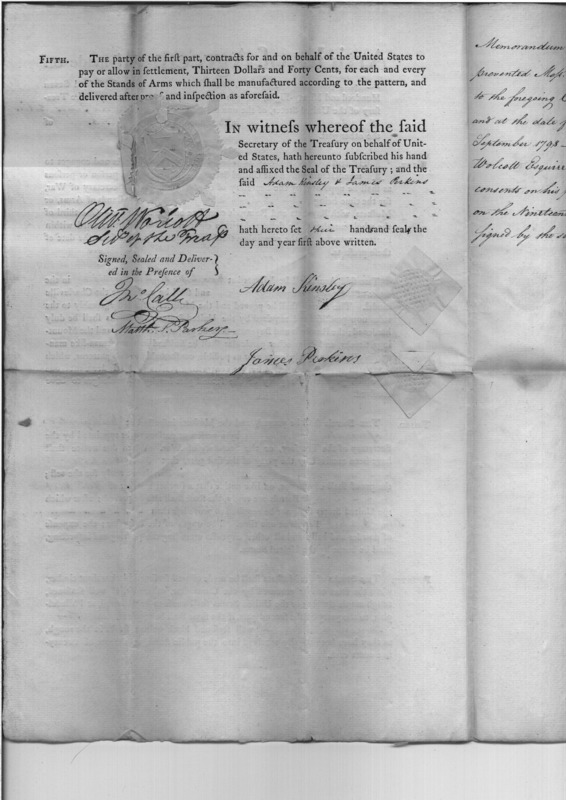 FIFTH. THE party of the firſt part, contracts for and on behalf of the United States to
pay or allow in ſettlement, Thirteen Dollars and Forty Cents, for each and every
of the Stands of Arms which ſhall be manufactured according to the pattern, and
delivered after and inſpection as aforeſaid.
IN witneſs whereof the ſaid
Secretary of the Treaſury on behalf of Unit-
ed States, hath hereunto ſubſcribed his hand
and affixed the Seal of the Treaſury; and the
ſaid Adam Kinsley & James Perkins
hath hereto ſet their hands and seals the
day and year firſt above written.
Oliv Wolcott
Secy of the Treasy
Signed, Sealed and Deliver-
ed in the Preſence of
Adam Kinsley
James Perkins
Memorandum
to the foregoing
and at the date of
September 1798 -
Wolcott Esquire
consents on his
on the Nineteen
signed by the